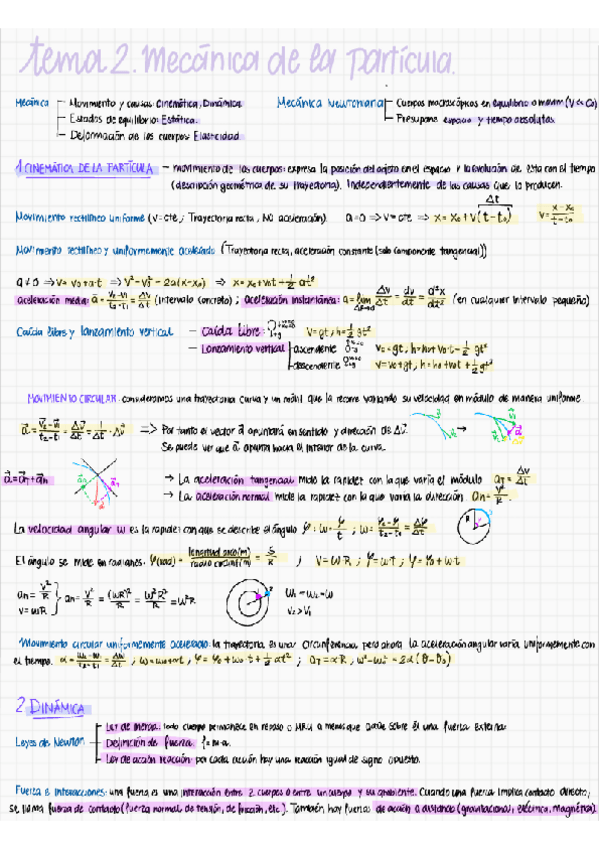 tema 2. Mecánica de la partícula.
Mecánica - Movimiento y causas: Cinemática, Dinámica
- Estados de equilibrio: Estática.
- Deformación de los cuerpos: Elasticidad
Mecánica Newtoniana - Cuerpos macroscópicos en equilibrio o movim (V << Co)
- Presupone espacio y tiempo absolutos
1 CINEMÁTICA DE LA PARTÍCULA - movimiento de los cuerpos: expresa la posición del objeto en el espacio y la evolución de esta con el tiempo
(descripción geométrica de su trayectoria). Independientemente de las causas que lo producen.
Movimiento rectilíneo uniforme (v=cte; Trayectoria recta, NO aceleración) a=0 ⇒ v=cte ⇒ x = x₀ + v(t - t₀) Δt v = x - x₀ / t - t₀
Movimiento rectilíneo y uniformemente acelerado (Trayectoria recta, aceleración constante (solo componente tangencial))
a ≠ 0 ⇒ v = v₀ + a·t ⇒ v² - v₀² = 2a(x - x₀) ⇒ x = x₀ + v₀t + 1/2 at²
aceleración media: a = v₂ - v₁ / t₂ - t₁ = Δv / Δt (intervalo concreto); aceleración instantánea: a = lim Δt→0 Δv / Δt = dv / dt = d²x / dt² (en cualquier intervalo pequeño)
Caída libre y lanzamiento vertical - Caída libre: v = gt, h = 1/2 gt²
- Lanzamiento vertical ascendente v = v₀ - gt, h = h₀ + v₀t - 1/2 gt²
descendente v = v₀ + gt, h = h₀ + v₀t + 1/2 gt²
MOVIMIENTO CIRCULAR: consideramos una trayectoria curva y un móvil que la recorre variando su velocidad en módulo de manera uniforme.
a = v₂ - v₁ / t₂ - t₁ = Δv / Δt = 1 / Δt · Δv ⇒ Por tanto el vector a apuntará en sentido y dirección de Δv.
Se puede ver que a apunta hacia el interior de la curva.
a = aT + an → La aceleración tangencial mide la rapidez con la que varía el módulo aT = Δv / Δt
→ La aceleración normal mide la rapidez con la que varía la dirección an = v² / R
La velocidad angular ω es la rapidez con que se describe el ángulo φ: ω = φ / t; ω = φ₂ - φ₁ / t₂ - t₁ = Δφ / Δt
El ángulo se mide en radianes. φ(rad) = longitud arco(m) / radio circunf(m) = S / R; v = ωR; φ = ωt; φ = φ₀ + ωt
an = v² / R
v = ωR
an = v² / R = (ωR)² / R = ω²R² / R = ω²R
ω₁ = ω₂ = ω
v₂ > v₁
Movimiento circular uniformemente acelerado: la trayectoria es una circunferencia, pero ahora la aceleración angular varía uniformemente con
el tiempo. α = ω₂ - ω₁ / t₂ - t₁ = Δω / Δt; ω = ω₀ + αt, φ = φ₀ + ω₀t + 1/2 αt²; aT = αR, ω² - ω₀² = 2α(θ - θ₀)
2 DINÁMICA
Leyes de Newton - Ley de inercia: todo cuerpo permanece en reposo o MRU a menos que actúe sobre él una fuerza externa.
- Definición de fuerza f = m·a.
- Ley de acción reacción: por cada acción hay una reacción igual de signo opuesto.
Fuerza e interacciones: una fuerza es una interacción entre 2 cuerpos o entre un cuerpo y su ambiente. Cuando una fuerza implica contacto directo,
se llama fuerza de contacto (fuerza normal de tensión, de fricción, etc.). También hay fuerzas de acción a distancia (gravitacional, eléctrica, magnética).